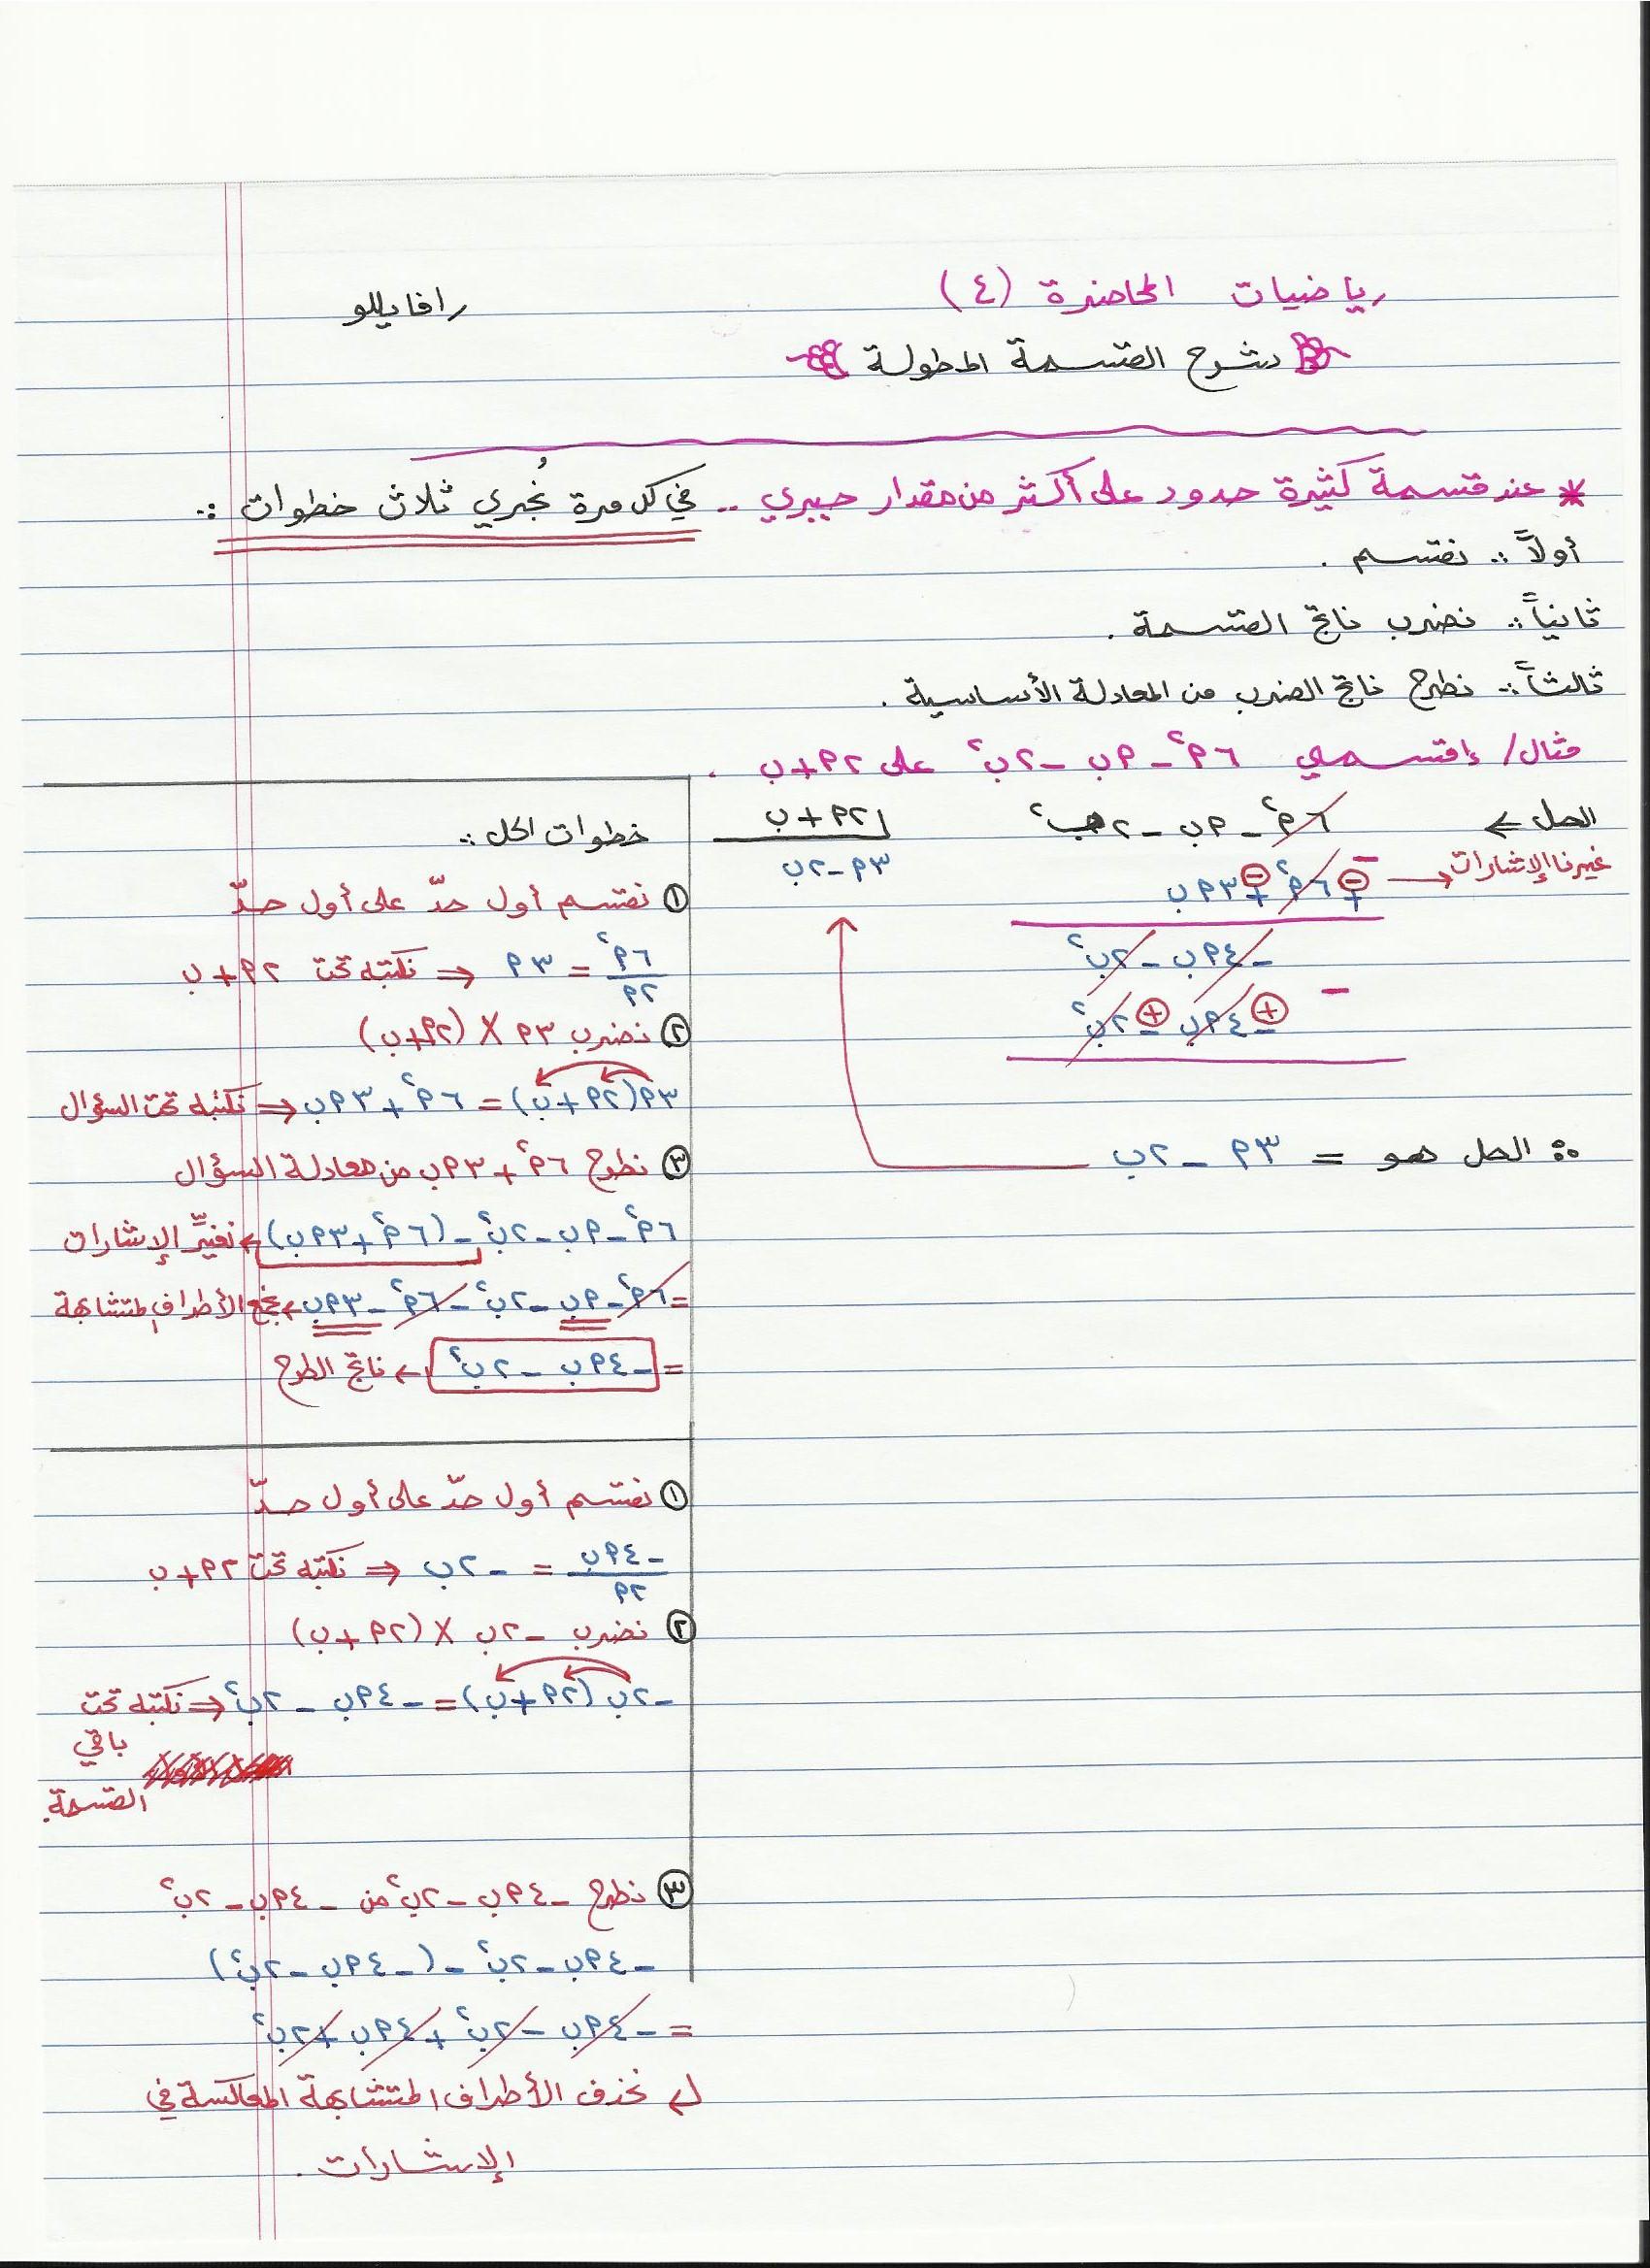 رياضيات المحاضرة (٤)
رافاييللو
شرح القسمة المطولة
* عند قسمة كثيرة حدود على أكثر من مقدار جبري .. في كل مرة نُجري ثلاث خطوات :.
أولاً :. نقسم .
ثانياً :. نضرب ناتج القسمة .
ثالثاً :. نطرح ناتج الضرب من المعادلة الأساسية .
مثال/ إقسمي ٦أ² - أب - ٢ب² على ٢أ + ب .
الحل ← ٦أ² - أب - ٢ب² | ٢أ + ب
٣أ - ٢ب
غيرنا الإشارات → - + ⊖ ٦أ² + ⊖ ٣أب
- ٤أب - ٢ب²
- - ⊕ ٤أب - ⊕ ٢ب²
∴ الحل هو = ٣أ - ٢ب
خطوات الحل :.
① نقسم أول حدّ على أول حدّ
٦أ² / ٢أ = ٣أ ⇒ نكتبه تحت ٢أ + ب
② نضرب ٣أ × (٢أ + ب)
٣أ(٢أ + ب) = ٦أ² + ٣أب ⇒ نكتبه تحت السؤال
③ نطرح ٦أ² + ٣أب من معادلة السؤال
٦أ² - أب - ٢ب² - (٦أ² + ٣أب) ← نغيّر الإشارات
= ٦أ² - أب - ٢ب² - ٦أ² - ٣أب ← نجمع الأطراف المتشابهة
= - ٤أب - ٢ب² ← ناتج الطرح
① نقسم أول حدّ على أول حدّ
- ٤أب / ٢أ = - ٢ب ⇒ نكتبه تحت ٢أ + ب
② نضرب - ٢ب × (٢أ + ب)
- ٢ب (٢أ + ب) = - ٤أب - ٢ب² ⇒ نكتبه تحت
باقي
القسمة.
③ نطرح - ٤أب - ٢ب² من - ٤أب - ٢ب²
- ٤أب - ٢ب² - (- ٤أب - ٢ب²)
= - ٤أب - ٢ب² + ٤أب + ٢ب²
↵ نحذف الأطراف المتشابهة المعاكسة في
الإشارات .